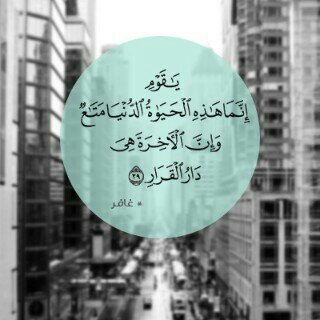 يَٰقَوْمِ
إِنَّمَا هَٰذِهِ ٱلْحَيَوٰةُ ٱلدُّنْيَا مَتَٰعٌ
وَإِنَّ ٱلْءَاخِرَةَ هِىَ
دَارُ ٱلْقَرَارِ ۝٣٩
* غافر